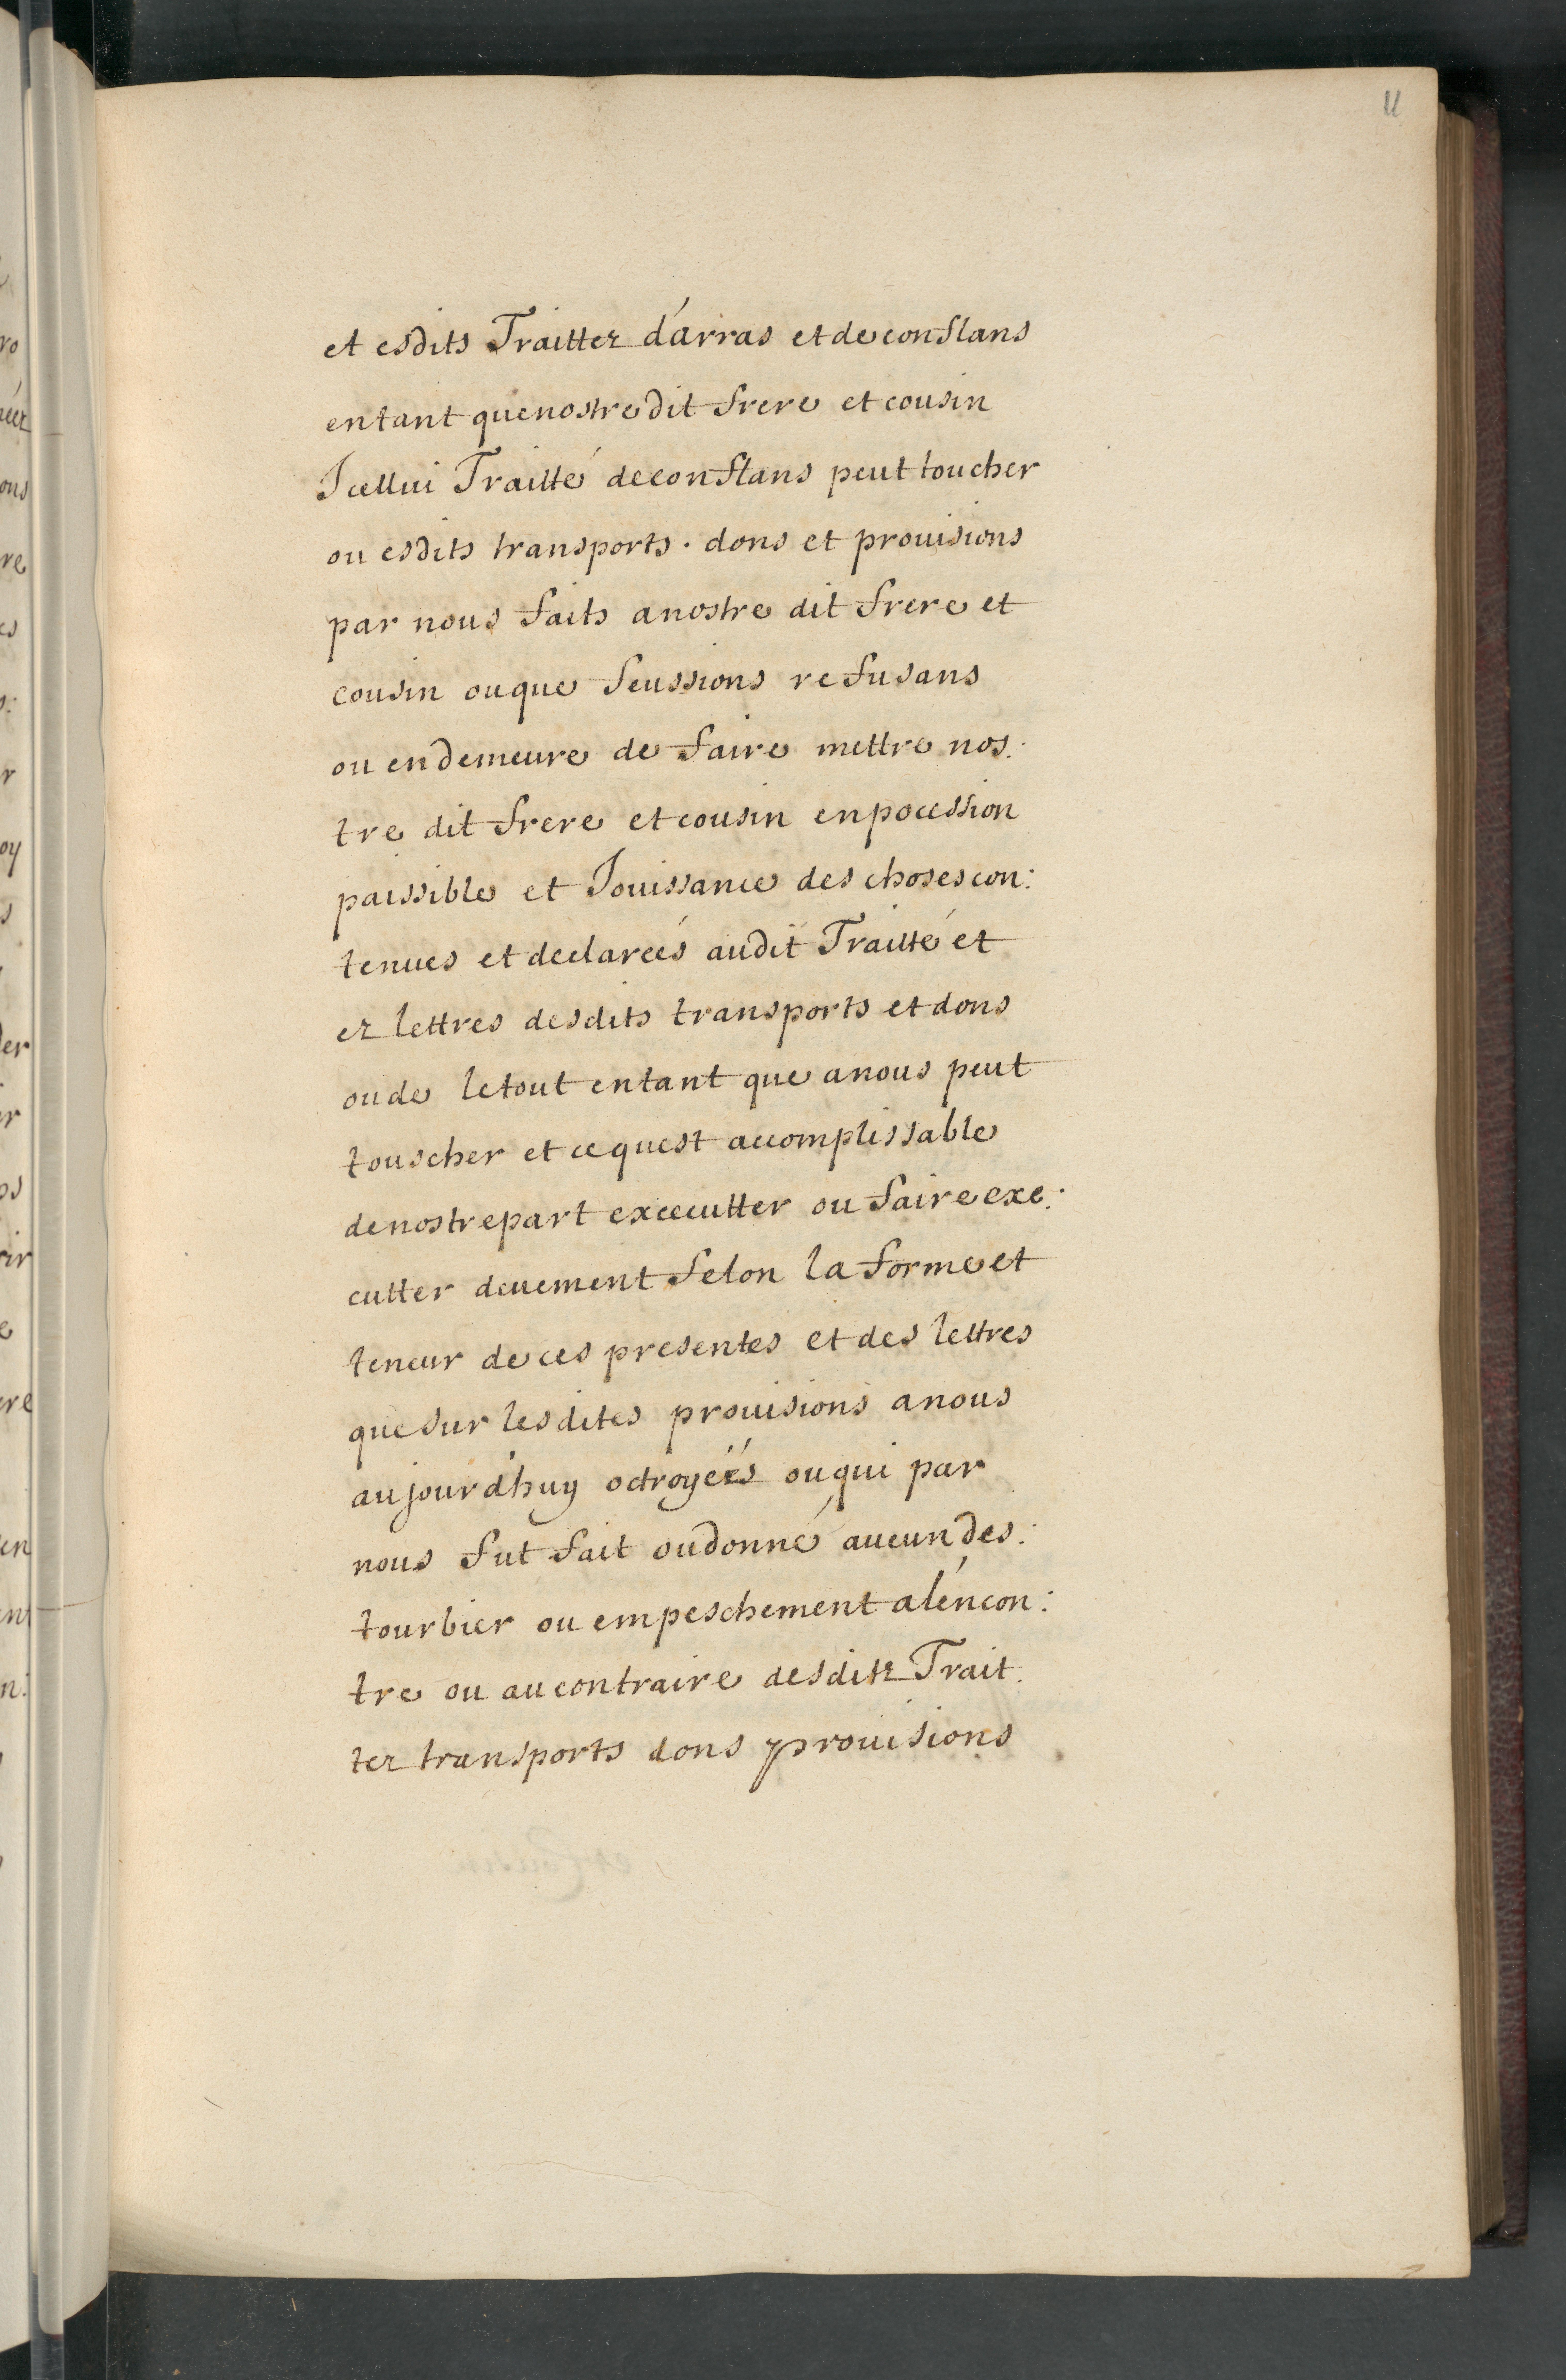 11
et esdits Traittez d'arras et de conflans
entant que nostre dit frere et cousin
Icellui Traitté de conflans peut toucher
ou esdits transports . dons et prouisions
par nous faits a nostre dit frere et
cousin ou que feussions refusans
ou en demeure de faire mettre nos:
tre dit frere et cousin en pocession
paissible et Jouissance des choses con:
tenues et declarcés audit Traitté et
ez lettres desdits transports et dons
ou de le tout entant que a nous peut
touscher et ce quest accomplissable
de nostre part excecutter ou faire exe:
cutter deuement selon la forme et
teneur de ces presentes et des lettres
que sur lesdites prouisions a nous
aujourd'huy octroyéés ou qui par
nous fut fait ou donné aucun des:
tourbier ou empeschement a l'encon:
tre ou au contraire desditz Trait:
tez transports dons prouisions